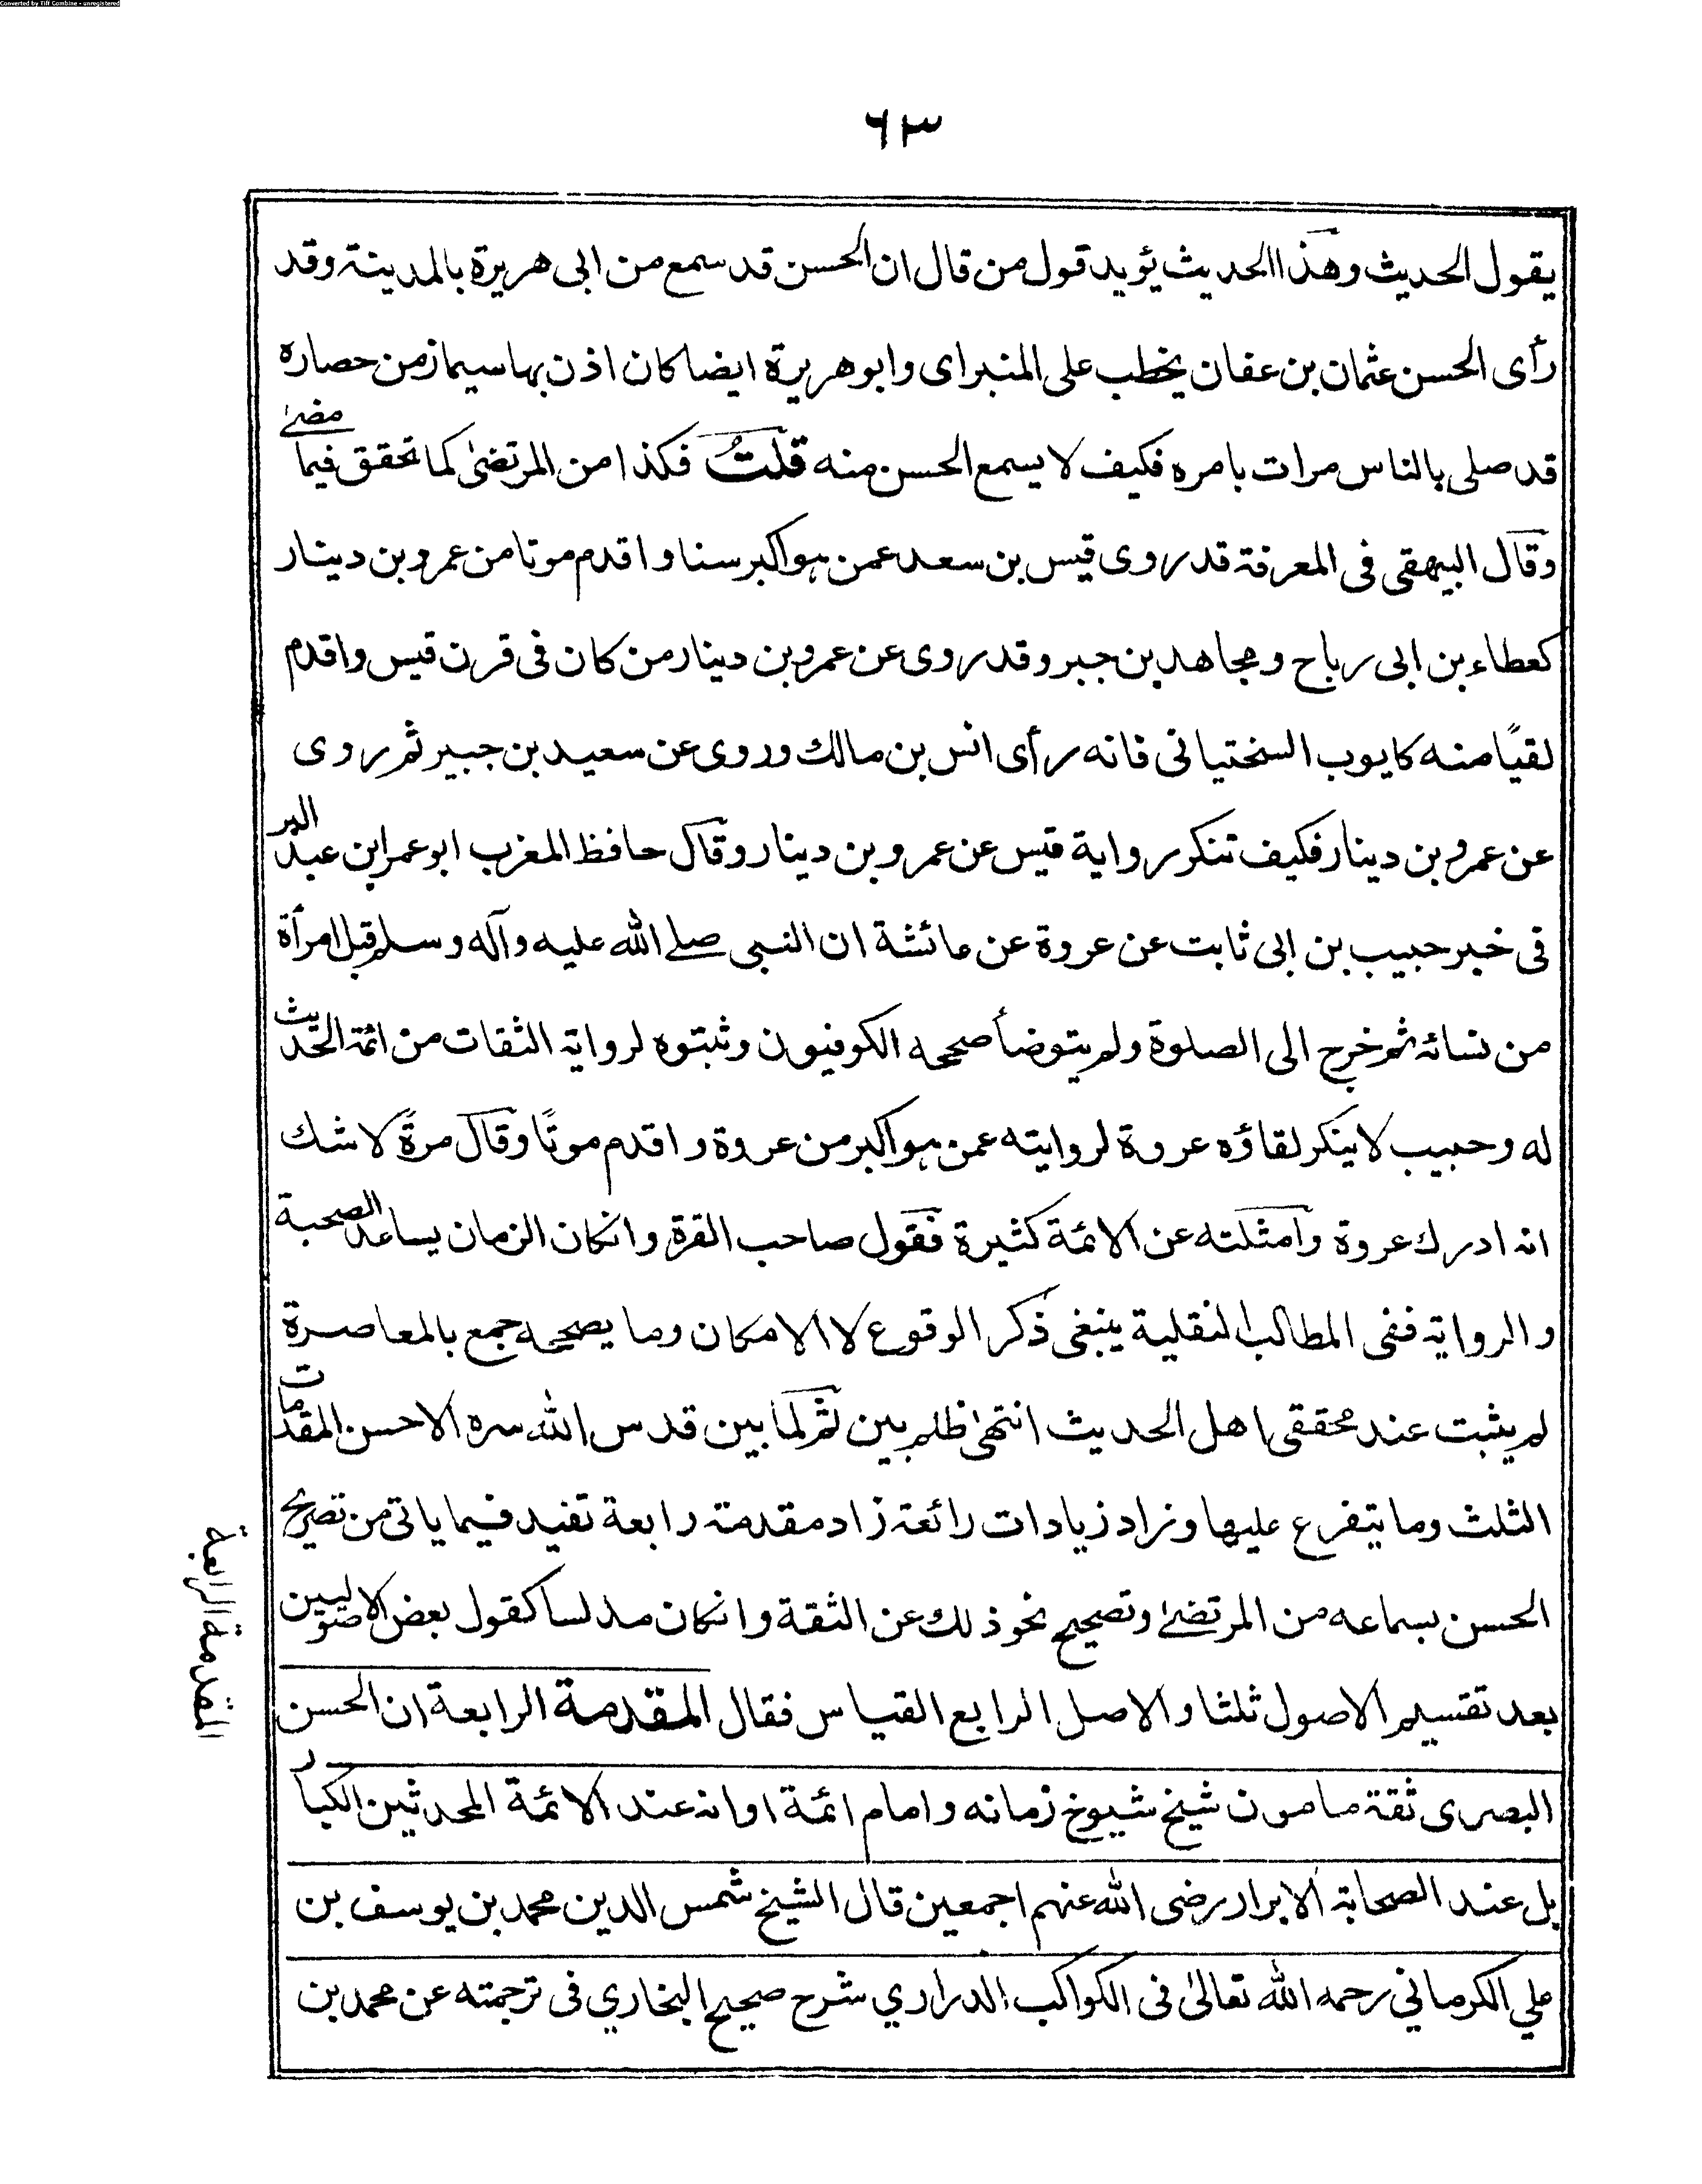 Converted by Tiff Combine - unregistered
٦٣
يقول الحديث وهذا الحديث يؤيد قول من قال ان الحسن قد سمع من ابى هريرة بالمدينة وقد
رأى الحسن عثمان بن عفان يخطب على المنبراى وابوهريرة ايضا كان اذن بها سيما زمن حصاره
قد صلى بالناس مرات بامره فكيف لا يسمع الحسن منه قلت فكذا من المرتضىٰ كما تحقق فيما مضىٰ
وقال البيهقى فى المعرفة قد روى قيس بن سعد عمن هو اكبر سنا واقدم موتا من عمرو بن دينار
كعطاء بن ابى رباح ومجاهد بن جبر وقد روى عن عمرو بن دينار من كان فى قرن قيس واقدم
لقيًا منه كايوب السختيانى فانه رأى انس بن مالك وروى عن سعيد بن جبير ثم روى
عن عمرو بن دينار فكيف تنكر رواية قيس عن عمرو بن دينار وقال حافظ المغرب ابو عمر ابن عبد البر
فى خبر حبيب بن ابى ثابت عن عروة عن عائشة ان النبى صلے الله عليه وآله وسلم قبل امرأة
من نسائه ثم خرج الى الصلوة ولم يتوضأ صححه الكوفيون وثبتوه لرواية الثقات من ائمة الحديث
له وحبيب لا ينكر لقاؤه عروة لروايته عمن هو اكبر من عروة واقدم موتًا وقال مرةً لا شك
انه ادرك عروة وامثلته عن الائمة كثيرة فقول صاحب القرة وانكان الزمان يساعد الصحبة
والرواية ففى المطالب النقلية ينبغى ذكر الوقوع لا الامكان وما يصححه جمع بالمعاصرة
لم يثبت عند محققى اهل الحديث انتهىٰ ظلم بين ثم لما بين قدس الله سره الاحسن المقدمات
الثلث وما يتفرع عليها وزاد زيادات رائعة زاد مقدمة رابعة تفيد فيما ياتى من تصريح
الحسن بسماعه من المرتضىٰ وتصحيح نحو ذلك عن الثقة وانكان مدلسا كقول بعض الاصوليين
بعد تقسيم الاصول ثلثا والاصل الرابع القياس فقال المقدمة الرابعة ان الحسن
البصرى ثقة مامون شيخ شيوخ زمانه وامام ائمة اوانه عند الائمة المحدثين الكبار
بل عند الصحابة الابرار رضى الله عنهم اجمعين قال الشيخ شمس الدين محمد بن يوسف بن
علي الكرماني رحمه الله تعالىٰ فى الكواكب الدراري شرح صحيح البخاري فى ترجمته عن محمد بن
المقدمة الرابعة